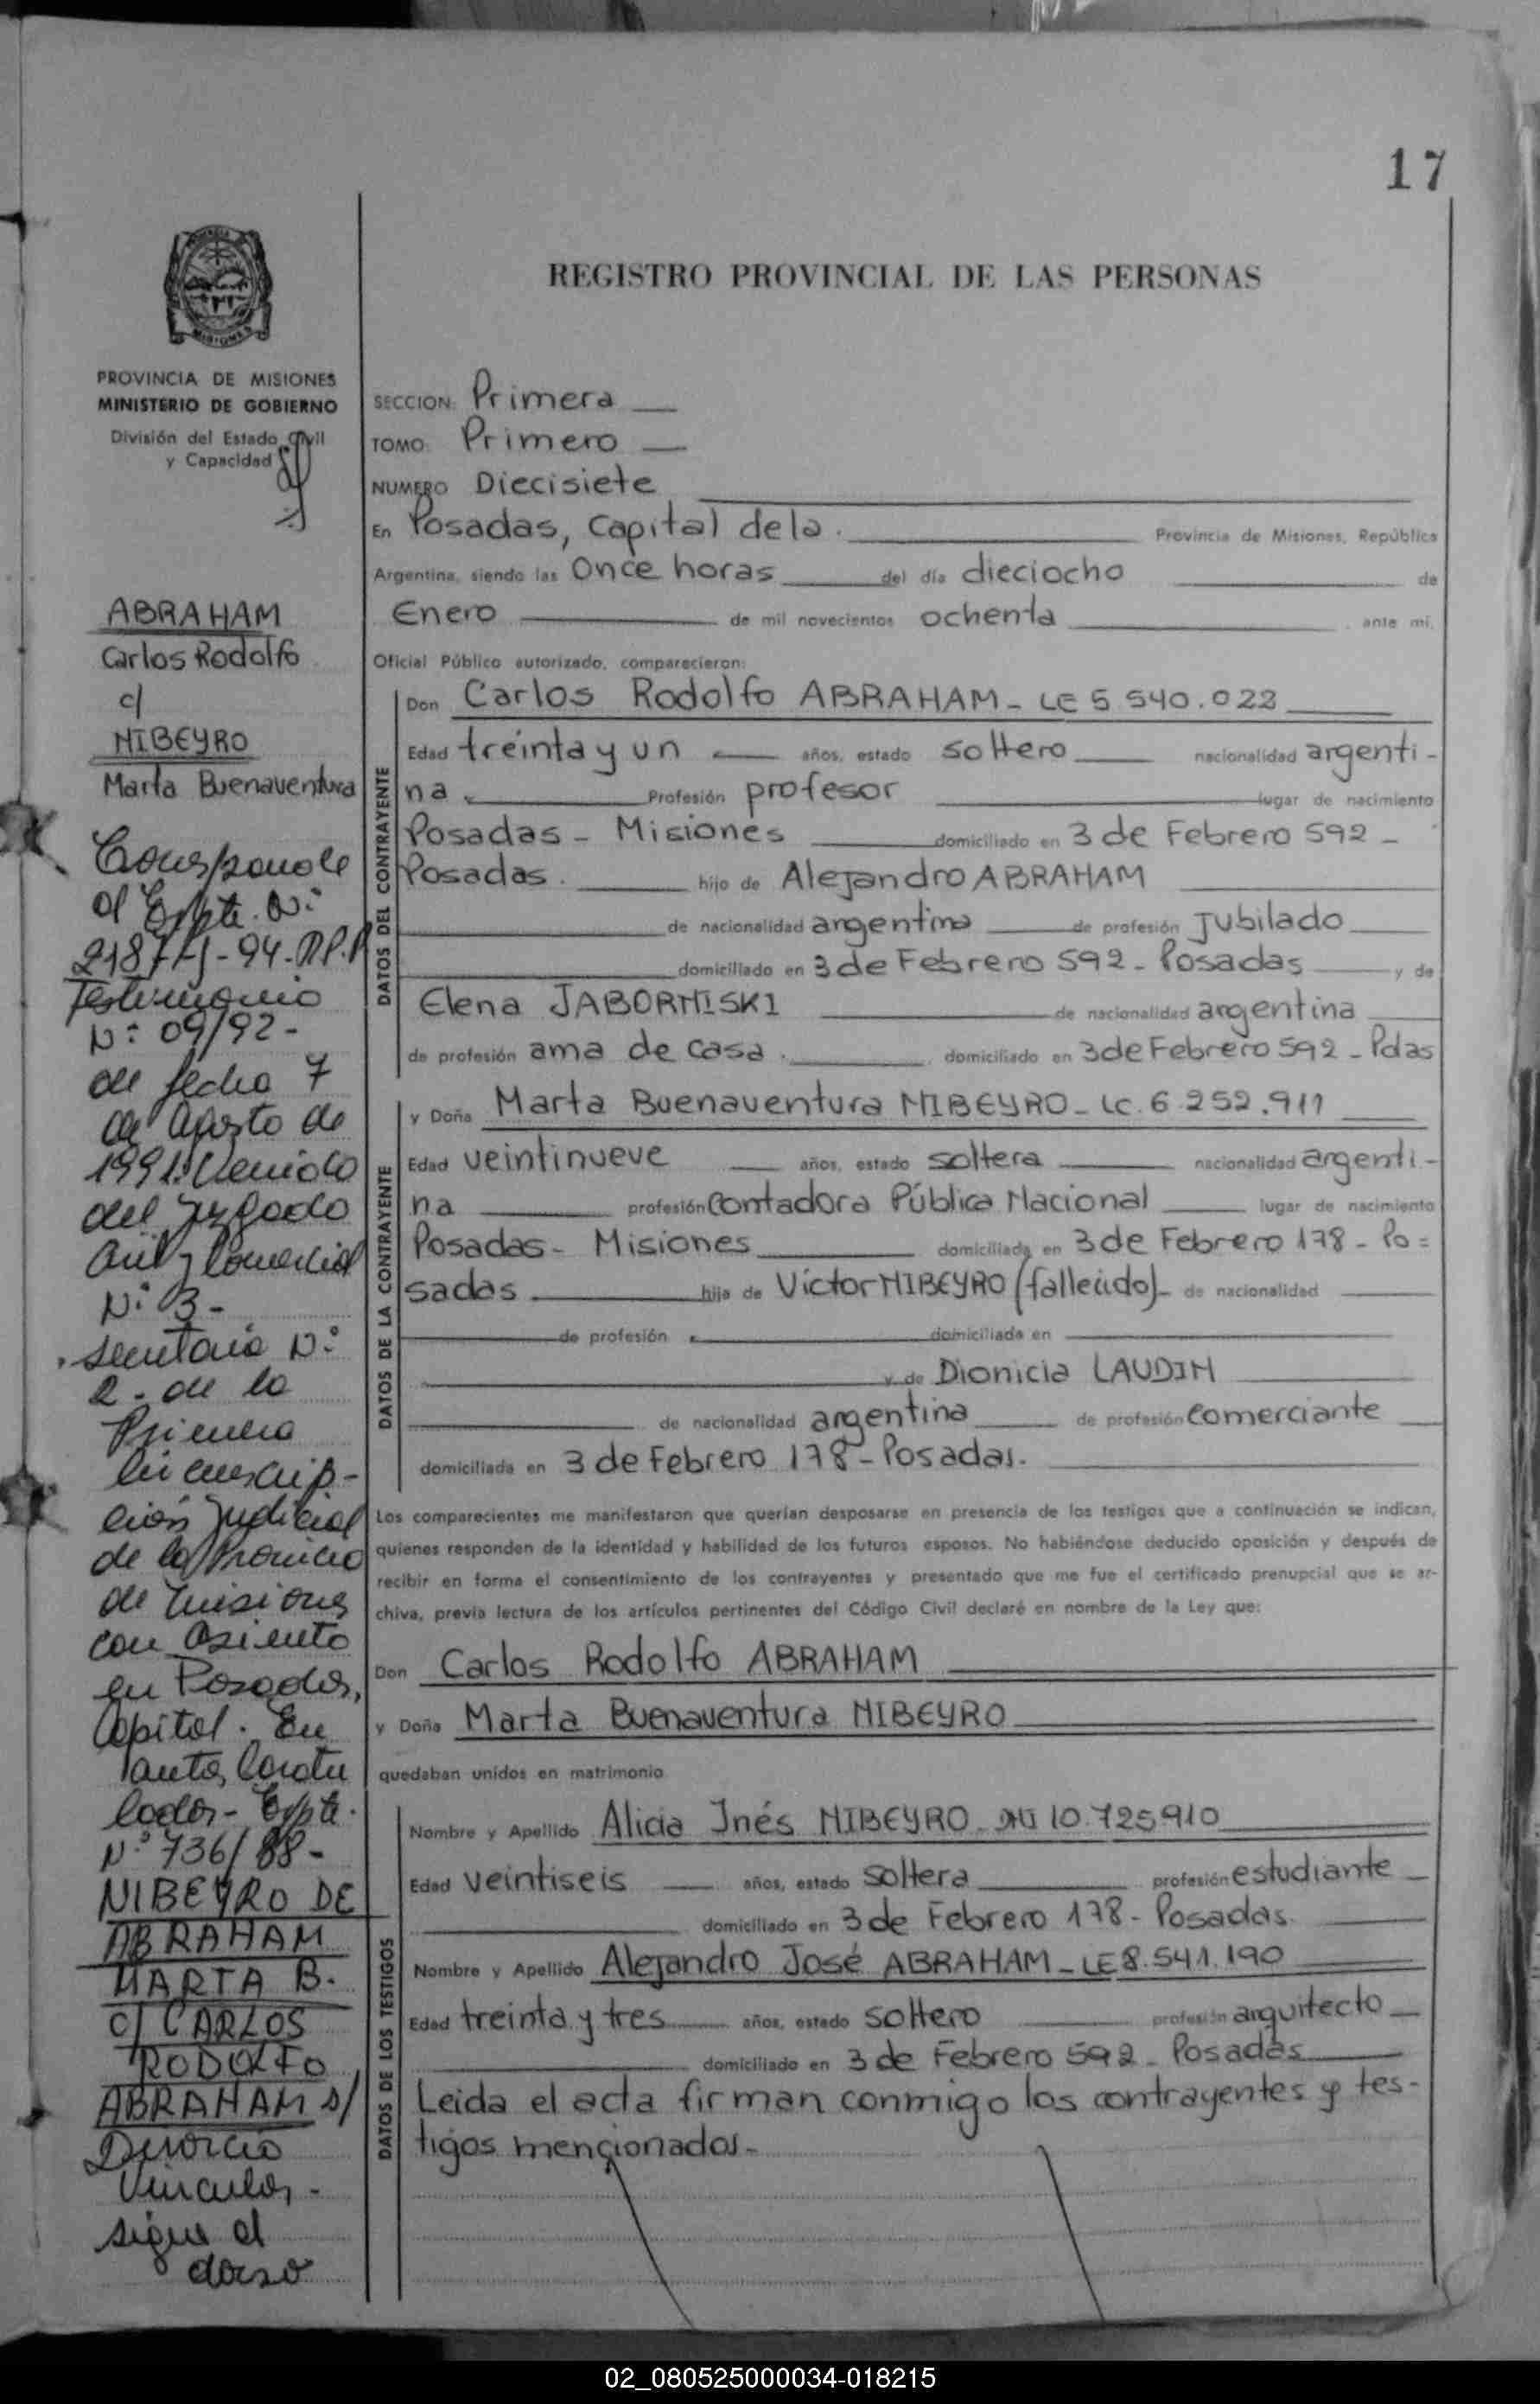 17
REGISTRO PROVINCIAL DE LAS PERSONAS
MISIONES
PROVINCIA DE MISIONES
MINISTERIO DE GOBIERNO
División del Estado Civil
y Capacidad
ABRAHAM
Carlos Rodolfo
c/
NIBEYRO
Marta Buenaventura
Corresponde
al Expte. Nº
94-R.P.P
Testimonio
Nº 09/92-
de fecha 7
de Agosto de
1991. Venido
del Juzgado
Civil y Comercial
Nº 3-
Secretaria Nº
2- de la
Primera
Circunscrip-
ción Judicial
de la Provincia
de Misiones
con asiento
en Posadas,
Capital. En
autos Caratu
lados- Expte.
Nº 736/88-
NIBEYRO DE
ABRAHAM
MARTA B.
c/ CARLOS
RODOLFO
ABRAHAM s/
Divorcio
Vincular-
sigue al
dorso
SECCION: Primera
TOMO: Primero
NUMERO Diecisiete
En Posadas, Capital de la. Provincia de Misiones, República
Argentina, siendo las Once horas del día dieciocho de
Enero de mil novecientos ochenta ante mí,
Oficial Público autorizado, comparecieron:
DATOS DEL CONTRAYENTE
Don Carlos Rodolfo ABRAHAM - LE 5.540.022
Edad treinta y un años, estado soltero nacionalidad argenti-
na. Profesión profesor lugar de nacimiento
Posadas - Misiones domiciliado en 3 de Febrero 592 -
Posadas. hijo de Alejandro ABRAHAM
de nacionalidad argentina de profesión Jubilado
domiciliado en 3 de Febrero 592 - Posadas y de
Elena JABORNISKI de nacionalidad argentina
de profesión ama de casa. domiciliado en 3 de Febrero 592 - Pdas
DATOS DE LA CONTRAYENTE
y Doña Marta Buenaventura NIBEYRO - LC. 6.252.911
Edad veintinueve años, estado soltera nacionalidad argenti-
na profesión Contadora Pública Nacional lugar de nacimiento
Posadas - Misiones domiciliada en 3 de Febrero 178 - Po=
sadas hija de Victor NIBEYRO (fallecido)- de nacionalidad
de profesión domiciliada en
y de Dionicia LAUDIN
de nacionalidad argentina de profesión comerciante
domiciliada en 3 de Febrero 178 - Posadas.
Los comparecientes me manifestaron que querían desposarse en presencia de los testigos que a continuación se indican,
quienes responden de la identidad y habilidad de los futuros esposos. No habiéndose deducido oposición y después de
recibir en forma el consentimiento de los contrayentes y presentado que me fue el certificado prenupcial que se ar-
chiva, previa lectura de los artículos pertinentes del Código Civil declaré en nombre de la Ley que:
Don Carlos Rodolfo ABRAHAM
y Doña Marta Buenaventura NIBEYRO
quedaban unidos en matrimonio
DATOS DE LOS TESTIGOS
Nombre y Apellido Alicia Inés NIBEYRO - DNI 10.725910
Edad veintiseis años, estado soltera profesión estudiante
domiciliado en 3 de Febrero 178 - Posadas.
Nombre y Apellido Alejandro José ABRAHAM - LE 8.541.190
Edad treinta y tres años, estado soltero profesión arquitecto
domiciliado en 3 de Febrero 592 - Posadas
Leida el acta firman conmigo los contrayentes y tes-
tigos mencionados -
02_080525000034-018215